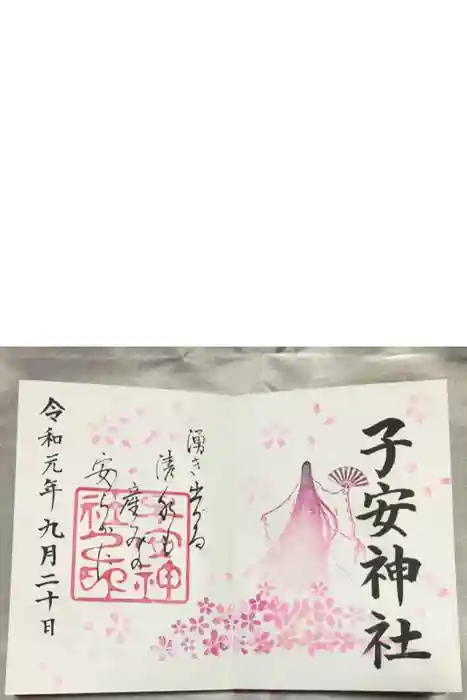 子安神社
湧き出づる
清水も
産みの
安らかに
子安神
社之印
令和元年九月二十日